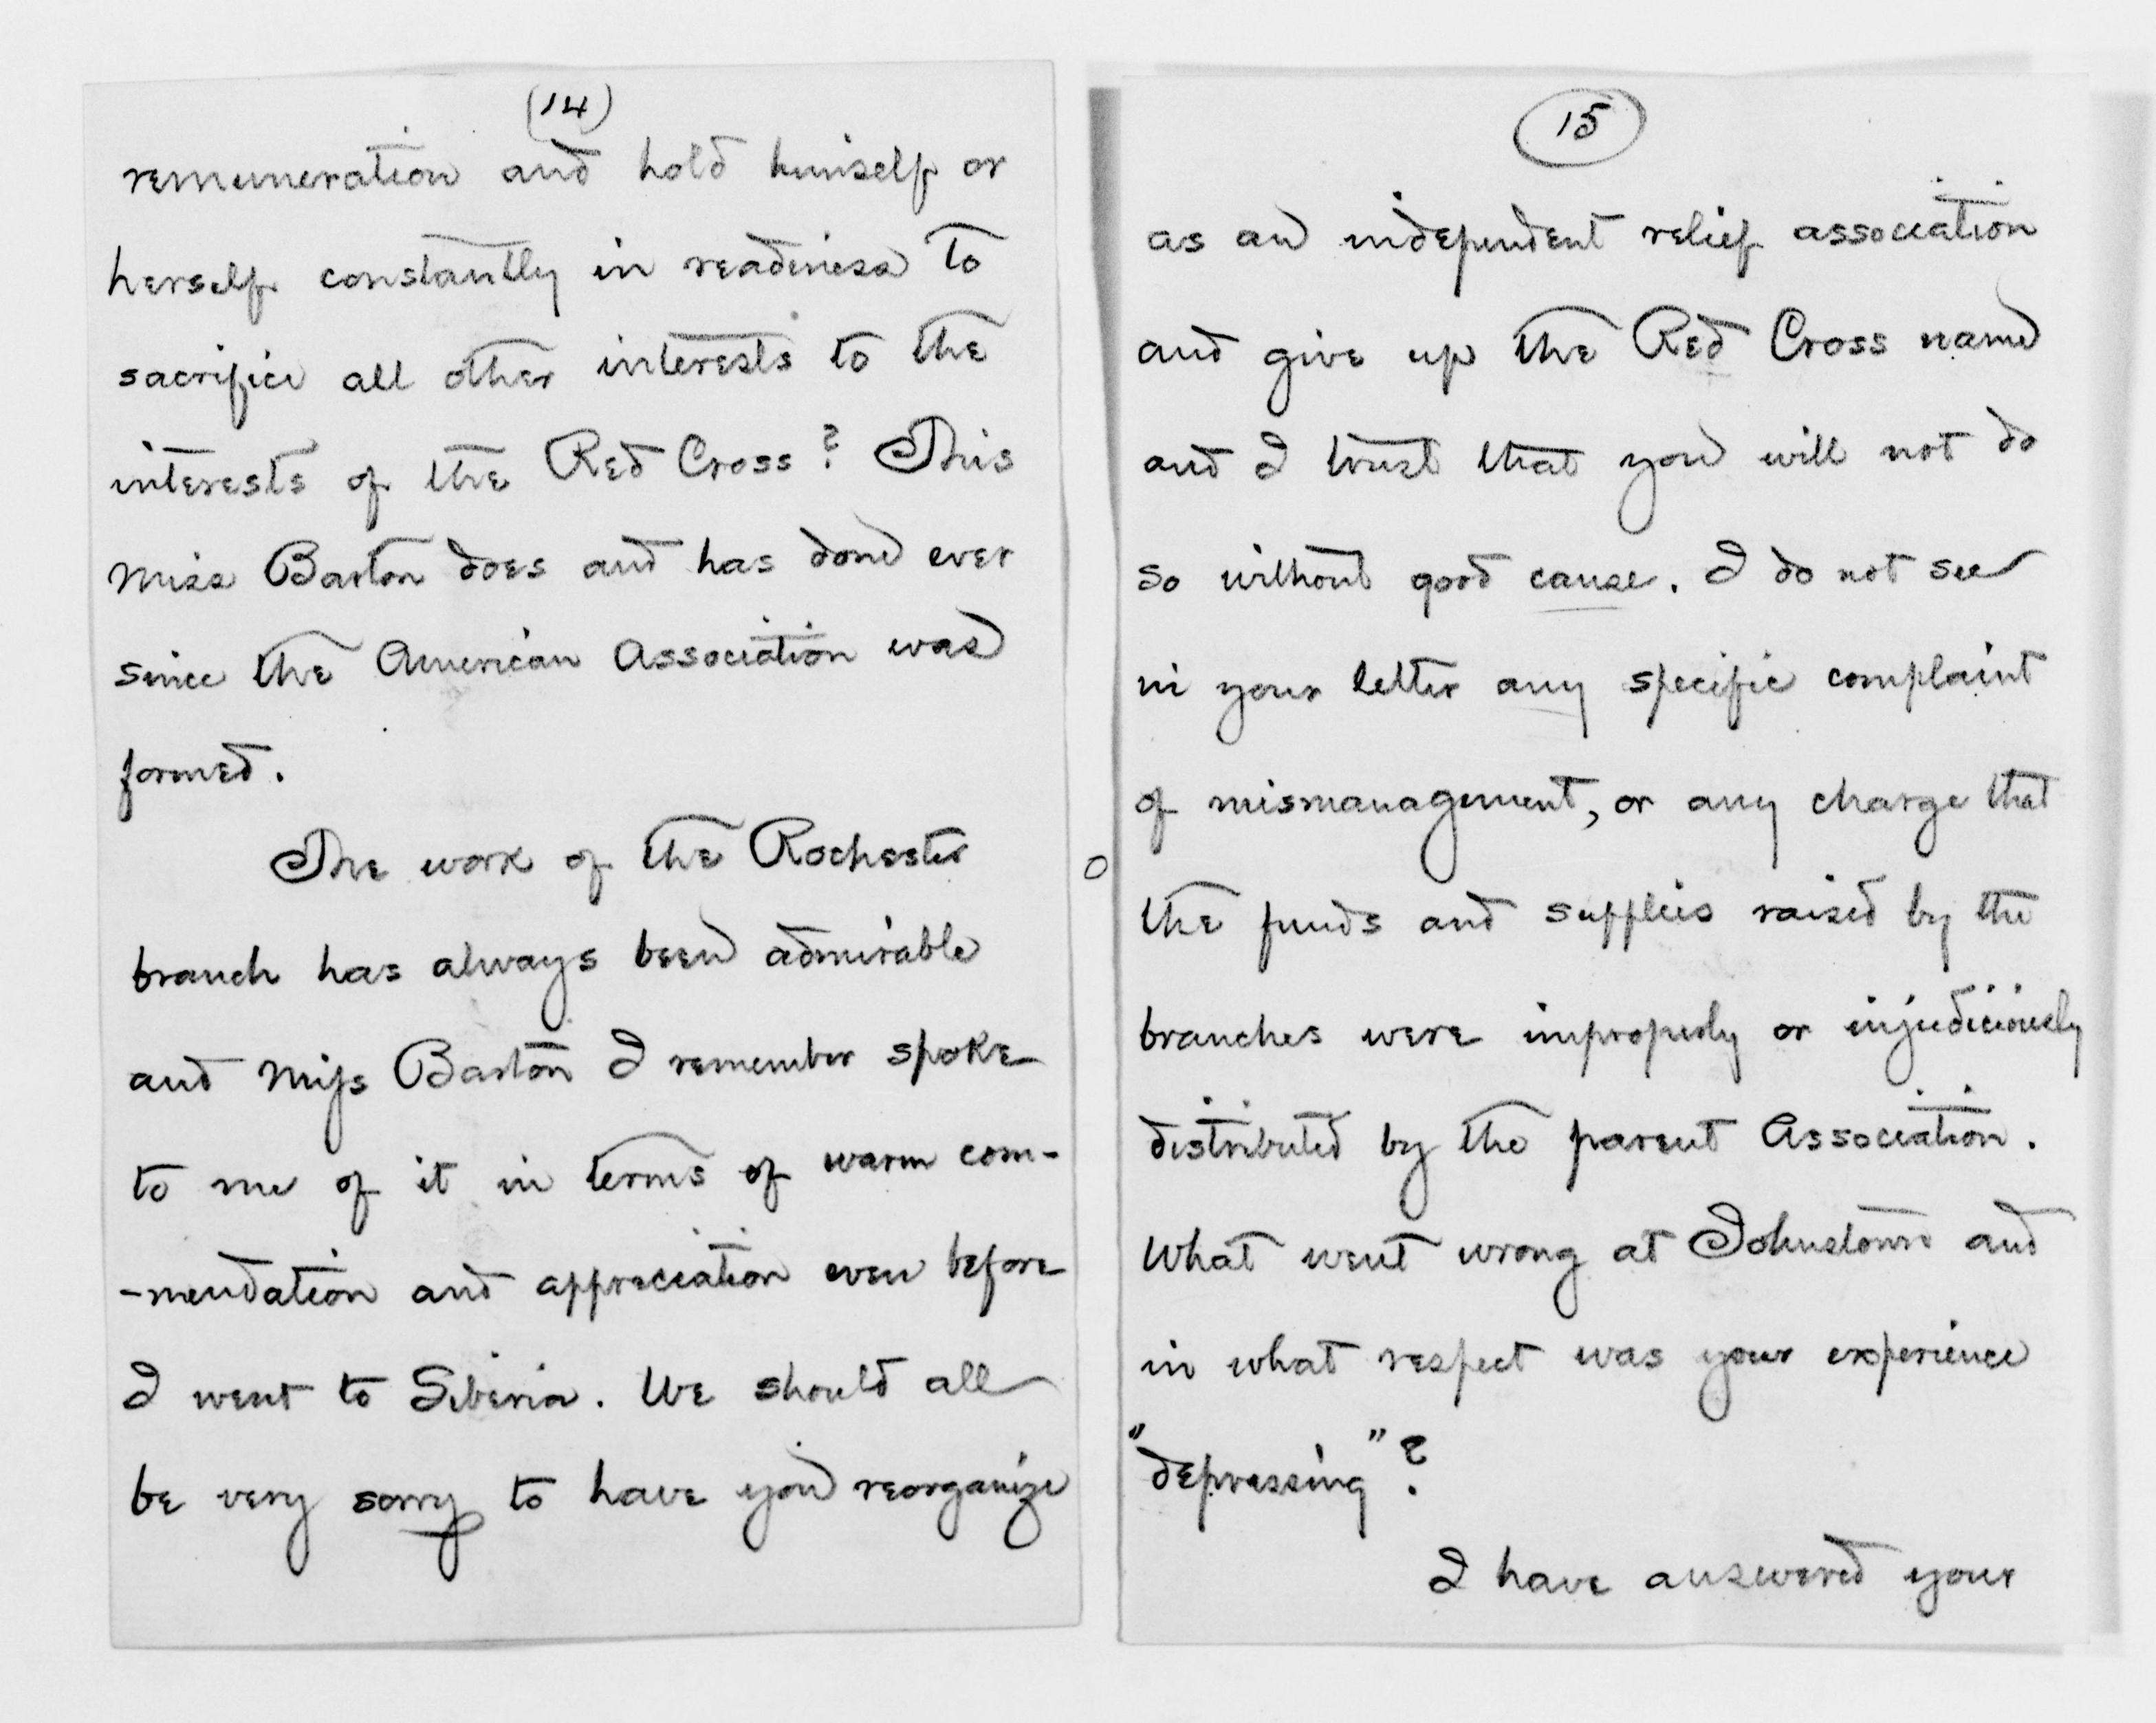 (14)
remuneration and hold himself or
herself constantly in readiness to
sacrifice all other interests to the
interests of the Red Cross? This
Miss Barton does and has done ever
since the American Association was
formed.
The work of the Rochester
branch has always been admirable
and Miss Barton I remember spoke
to me of it in terms of warm com-
-mendation and appreciation even before
I went to Siberia. We should all
be very sorry to have you reorganize
15
as an independent relief association
and give up the Red Cross name
and I trust that you will not do
so without good cause. I do not see
in your letter any specific complaint
of mismanagement, or any charge that
the funds and supplies raised by the
branches were improperly or injudiciously
distributed by the parent Association.
What went wrong at Johnstown and
in what respect was your experience
"depressing"?
I have answered your